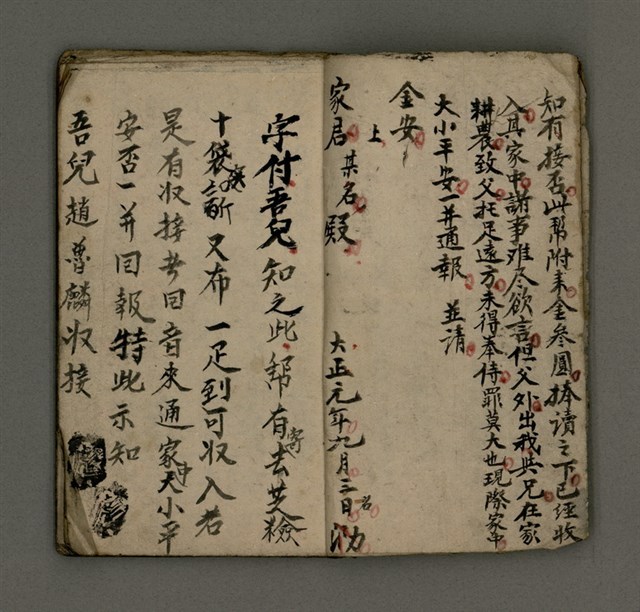 知有接否此幫附來金叁圓捧讀之下已經收
入其家中諸事难尽欲言但父外出我與兄在家
耕農致父托足遠方未得奉侍罪莫大也現際家中
大小平安一并通報 並請
金安
上
家君某名殿 大正元年九月三日 名
字付吾兒知之此幫有寄去
十袋 又布一疋到可收入若
是有收接者回音來通家中大小平
安否一并回報特此示知
吾兒趙魯麟收接